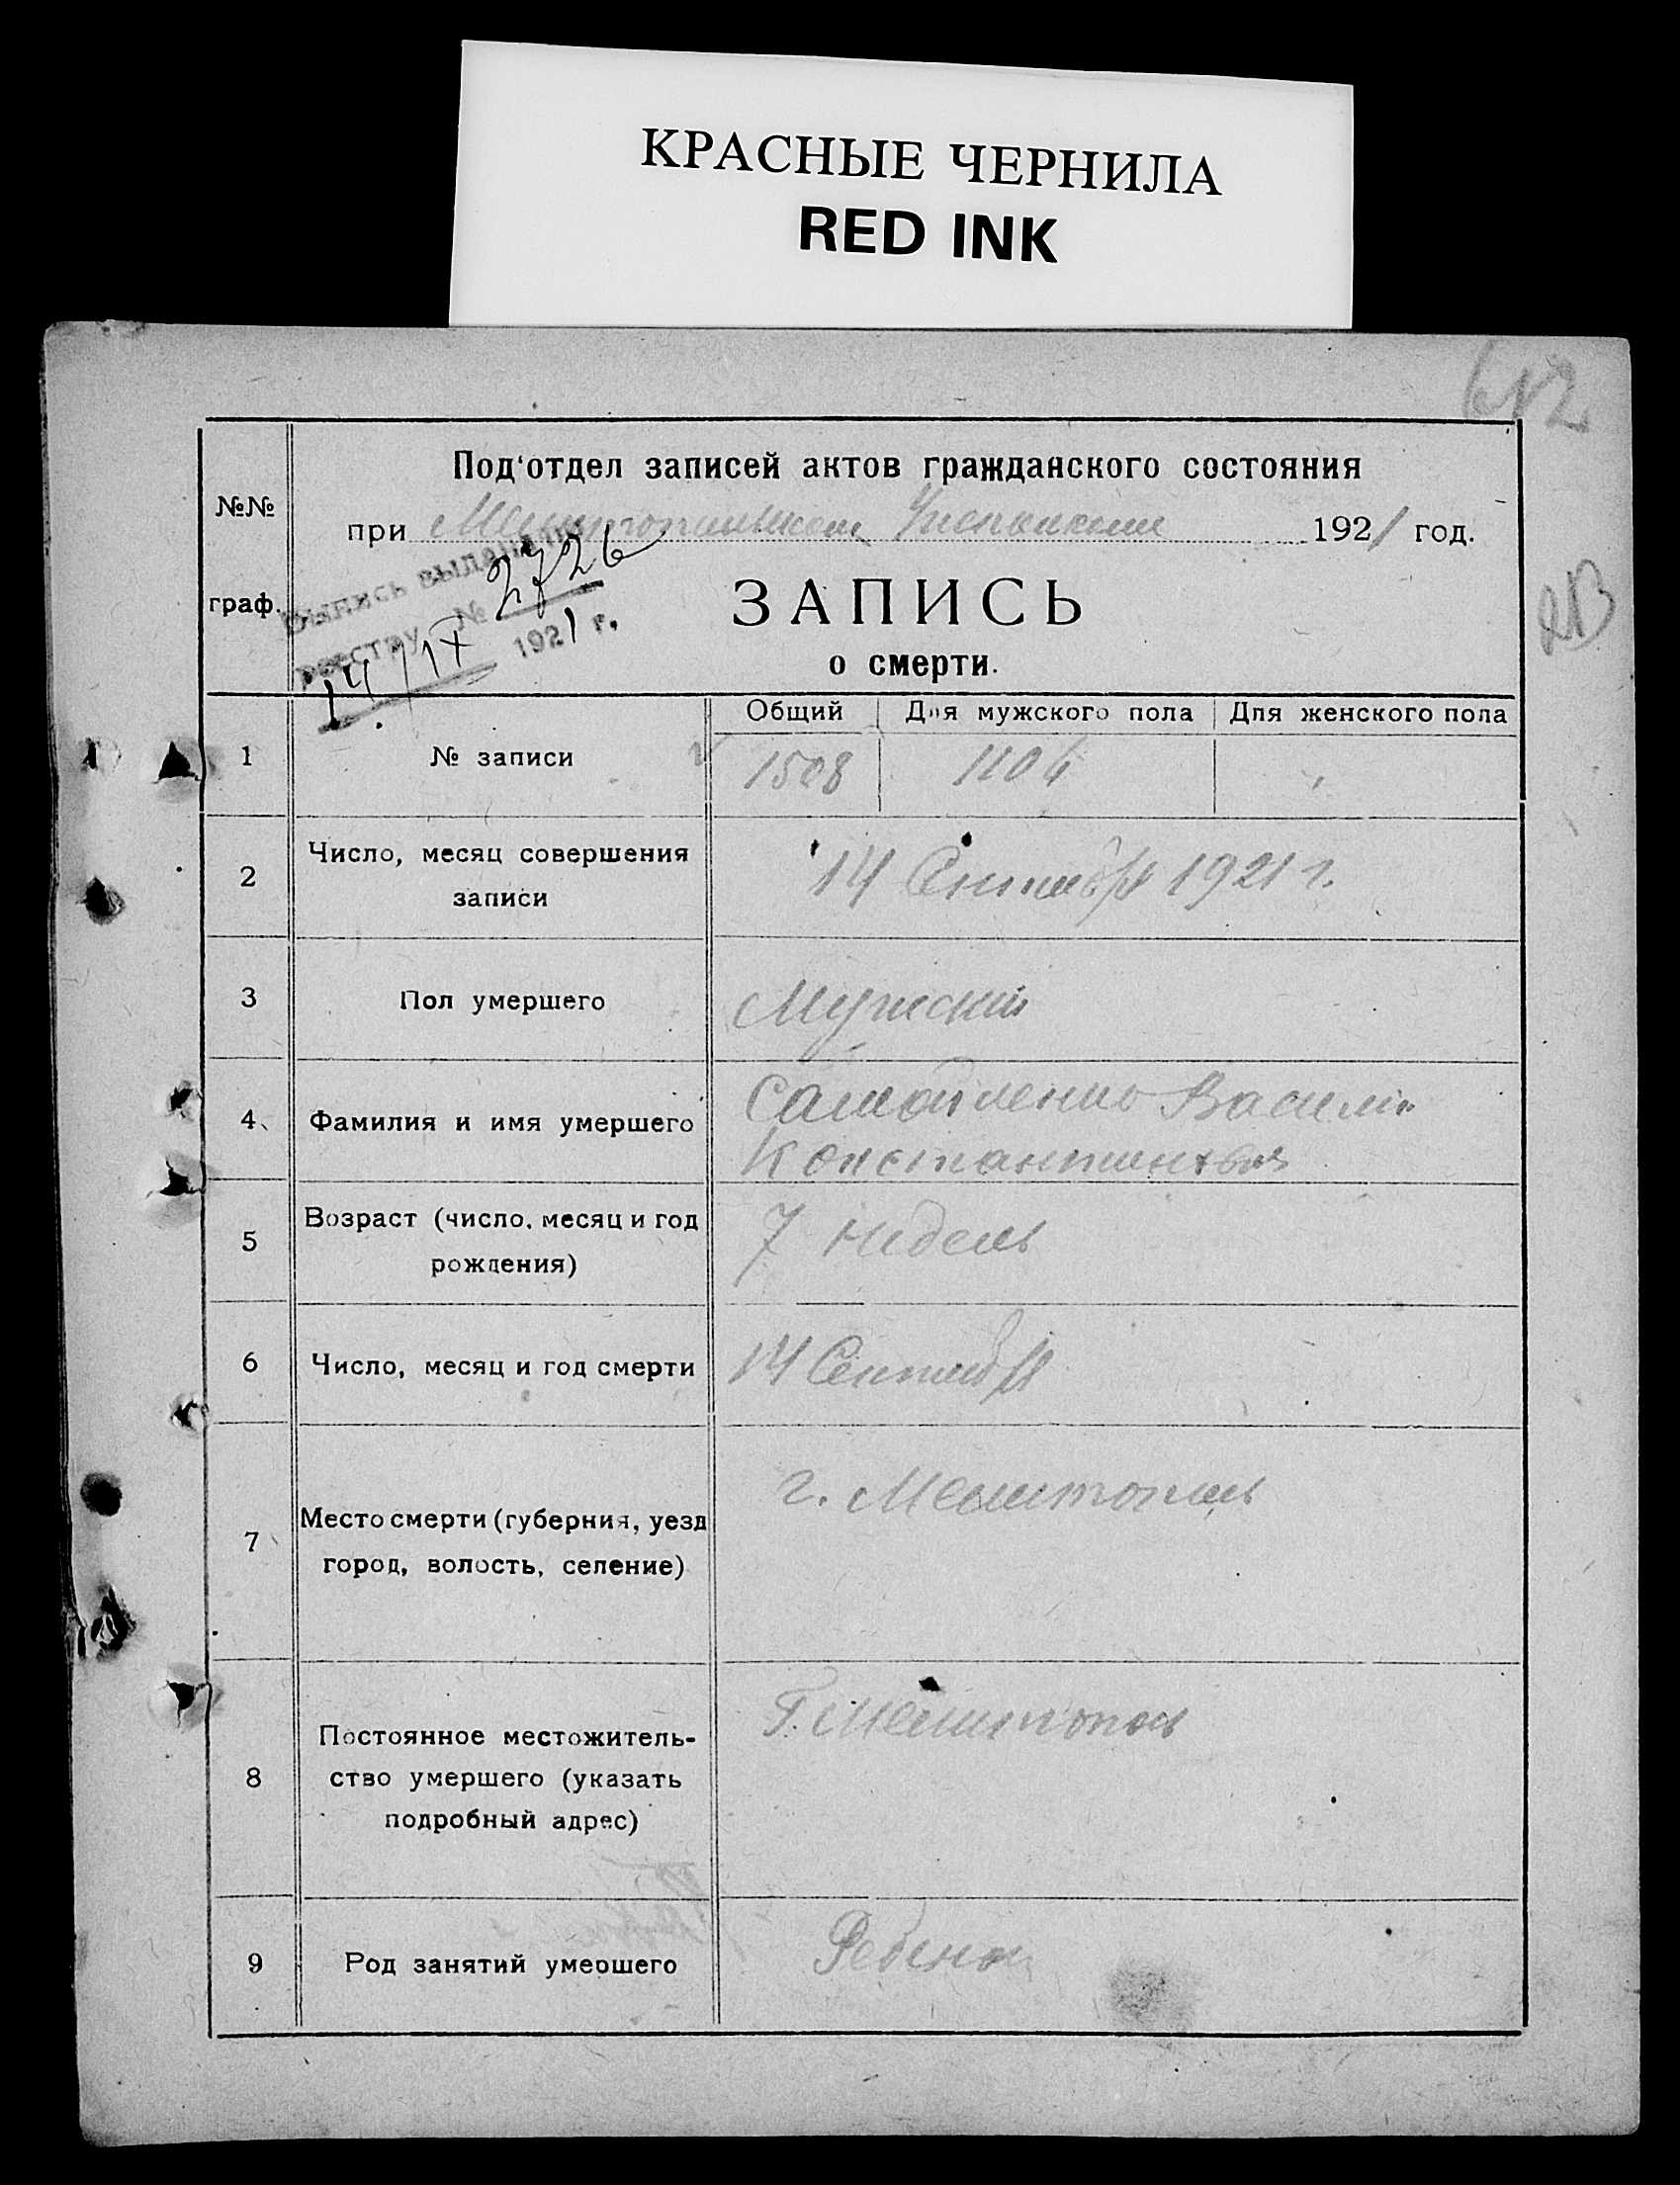 КРАСНЫЕ ЧЕРНИЛА
RED INK
612
Под'отдел записей актов гражданского состояния
№№
граф.
при Мелитопольском Уисполкоме 1921 год.
Выпись выдана по
реестру № 2726
14/IX 1921 г.
ЗАПИСЬ
о смерти.
Общий Для мужского пола Для женского пола
1 № записи 1508 1106 "
2 Число, месяц совершения
записи
14 Сентября 1921 г.
3 Пол умершего Мужской
4 Фамилия и имя умершего Самойленко Василий
Константинович
5 Возраст (число, месяц и год
рождения)
7 недель
6 Число, месяц и год смерти 14 Сентября
7 Место смерти (губерния, уезд
город, волость, селение)
г. Мелитополь
8 Постоянное местожитель-
ство умершего (указать
подробный адрес)
Г. Мелитополь
9 Род занятий умершего Ребенок